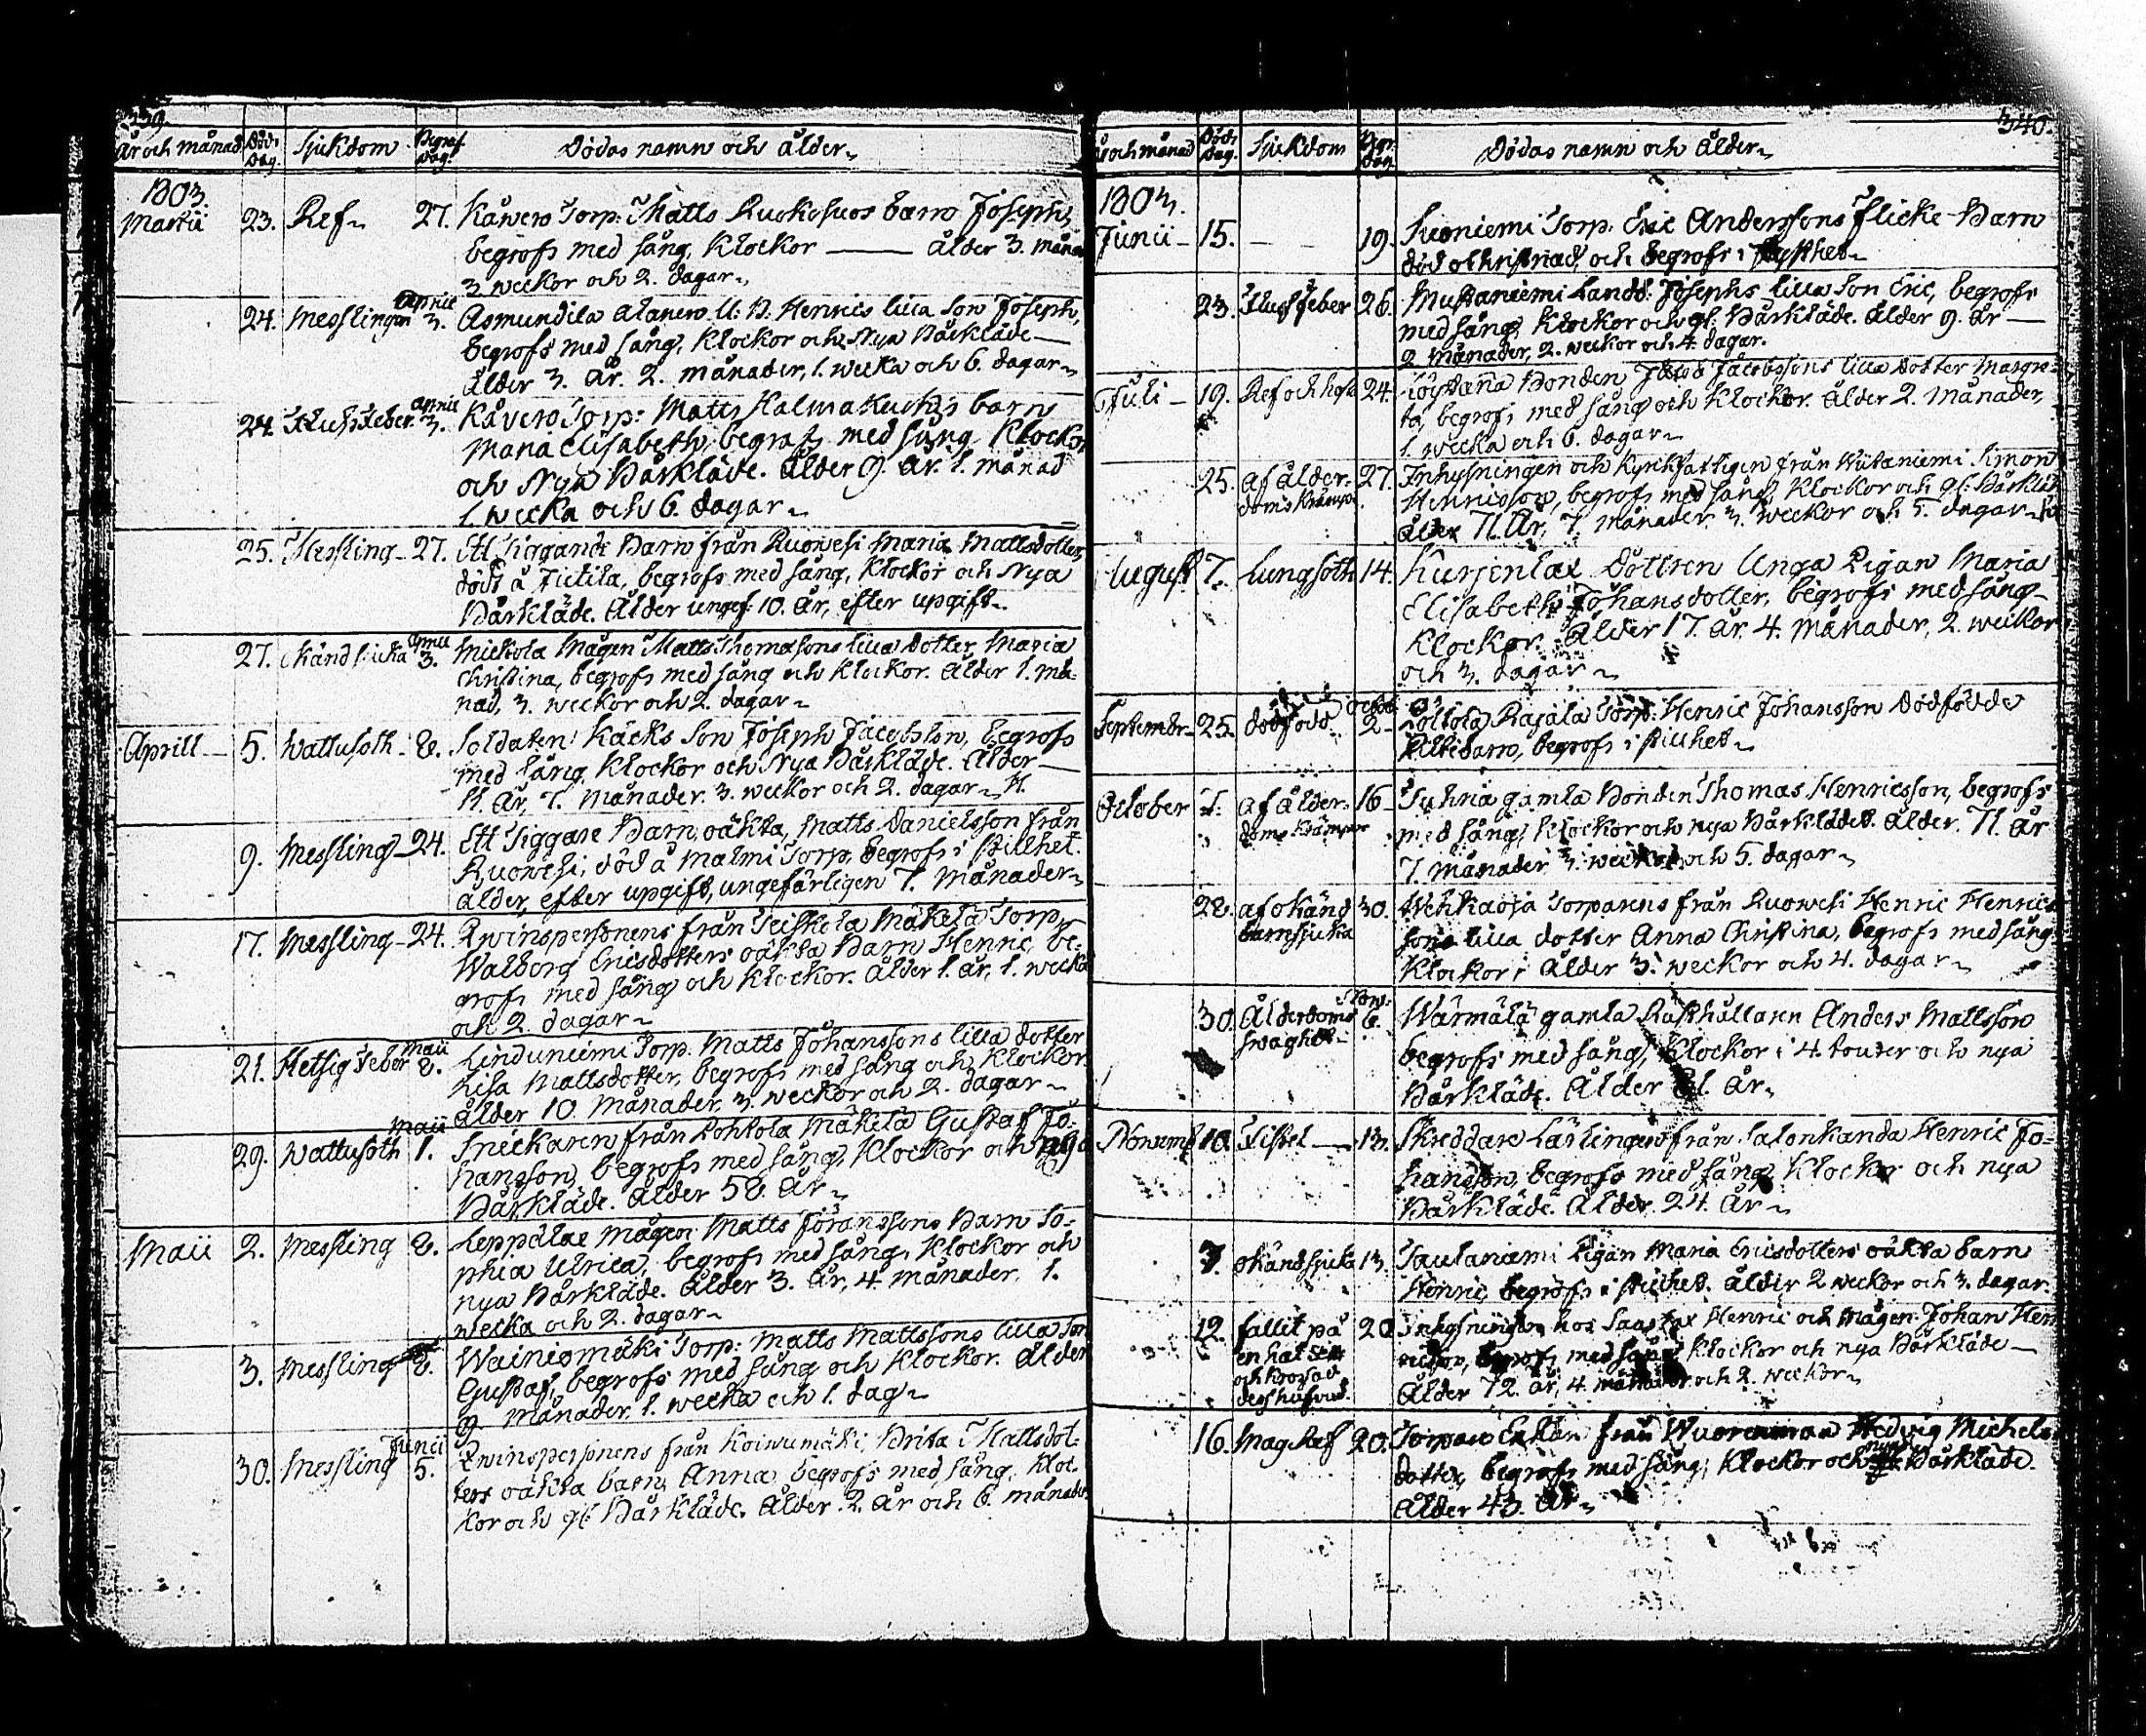 339.
År och månad. Död: Dag. Sjukdom Begraf. Dag. Dödas namn och ålder
1803.
Martii 23. Ref 27. Torp: Matts barn Joseph,
begrofs med sång, Klockor — ålder 3. måna
3 weckor och 2. dagar
24. Messlingen Aprill 3. Asmundila Henrics lilla Son Joseph,
begrofs med sång, Klockor och Nya Bårkläde —
Ålder 3. år. 2. månader, 1. wecka och 6. dagar
24. Aprill 3. Torp: Matts barn
Maria Elisabeth, begrafs med sång Klockor
och Nya Bårkläde. Ålder 9. år. 1. månad
1. wecka och 6. dagar
25. Messling 27. Ett Tiggande Barn från Ruowesi Maria Mattsdotter,
död å begrofs med sång, Klockor och Nya
Bårkläde. Ålder ungef. 10. år, efter upgift.
27. Aprill 3. Mickola Mågen Matts Thomasons lilla dotter Maria
Christina, begrofs med sång och Klockor. Ålder 1. må-
nad, 3. weckor och 2. dagar
Aprill — 5. Wattusoth 8. Soldaten Käcks Son Joseph Jacobsson, begrofs
med sång, Klockor och Nya Bårkläde. Ålder —
11. år, 7. Månader. 3. weckor och 2. dagar
9. Messling 24. Ett Tiggare Barn, oäkta, Matts Danielsson från
Ruowesi, död å Malmi Torp, begrofs i Stillhet.
ålder, efter upgift, ungefärligen 7. Månader
17. Messling 24. Qwinspersonens från Teiskola Mäkelä Torp,
Walborg Ericsdotters oäkta Barn Henric, be-
grofs med sång och Klockor. Ålder 1. år, 1. wecka
och 2. dagar
21. Hetsig Feber Maii 8. Linduniemi Torp. Matts Johanssons lilla dotter
Lisa Mattsdotter, begrofs med sång och Klockor.
Ålder 10. Månader, 3. weckor och 2. dagar
29. Wattusoth Maii 1. Snickaren från Pohtola Mäkelä Gustaf Jo-
hansson, begrofs med sång, Klockor och nya
Bårkläde. Ålder 58. år
Maii 2. Messling 8. Leppälax mågen Matts Jöranssons Barn So-
phia Ulrica, begrofs med sång, Klockor och
nya Bårkläde. Ålder 3. år, 4. månader, 1.
wecka och 2. dagar
3. Messling 8. Wainiomäki Torp: Matts Mattssons lilla Son
Gustaf, begrofs med sång och Klockor. Ålder
9. månader. 1. wecka och 1. dag
30. Messling Junii 5. Qwinspersonens från Koiwumäki, Brita Mattsdot-
ters oäkta barn Anna, begrofs med sång, Kloc-
kor och gl. Bårkläde. Ålder 2. år och 6. månader.
340.
År och månad Död: Dag. Sjukdom Begr: Dag. Dödas namn och ålder
1803.
Junii — 15. — 19. Suoniemi Torp. Eric Anderssons Flicke-Barn
död ochristnad, och begrofs i
23. Feber 26. Mustaniemi Landb. Josephs lilla Son Eric, begrofs
med sång, Klockor och gl. Bårkläde. Ålder 9. år —
2. Månader, 2. weckor och 4. dagar.
Juli — 19. Ref och hosta 24. Bonden Jacob Jacobssons lilla dotter Margre-
ta, begrofs med sång och Klockor. Ålder 2. månader,
1. wecka och 6. dagar
25. af ålder- 27. Inhysningen och Kyrkfattigen från Simon
doms Krämpor Henricsson, begrofs med sång, Klockor och gl. Bårkläde
Ålder 71. år, 7. månader, 3. weckor och 5. dagar
August 7. Lungsoth 14. Kurjenlax Dottren Unga Pigan Maria
Elisabeth Johansdotter, begrofs med sång
Klockor. Ålder 17. år, 4. månader, 2. weckor
och 3. dagar
September 25. dödfödd Octob. 2. Pottola Rajala Torp: Henric Johansson Dödfödde
begrofs i stillhet
October af ålder- 16. gamla Bonden Thomas Henricsson, begrofs
doms krämpor med sång, Klockor och nya Bårklädet. Ålder. 71. år
7. månader 3. weckor och 5. dagar
28. af okänd 30. Wehkaoja Torparens från Ruowesi Henric Henrics
barnsjuka sons lilla dotter Anna Christina, begrofs med sång
Klockor. Ålder 3. weckor och 4. dagar
30. Ålderdoms Now: 6. Wärmälä gamla Rusthållaren Anders Mattsson
swaghet begrofs med sång, Klockor i 4. touter och nya
Bårkläde. Ålder 81. år
Novemb. 10. Fistel — 13. Skreddare Lärlingen från Salonkanda Henric Jo-
hansson, begrofs med sång, Klockor och nya
Bårkläde. Ålder. 24. år
7. okänd sjuka 13. Sautaniemi Pigan Maria Ericsdotters oäkta barn
Henric, begrofs i stillhet. Ålder 2. weckor och 3. dagar.
12. fallit på 20. Inhysningen hos Saastox Henric och mågen Johan Hen
en hal
ricsson, begrofs med sång Klockor och nya Bårkläde —
och krossad
dess hufvud. Ålder 72. år, 4. månader och 2. weckor
16. Mag Ref 20. Torpare Enkan från Wuorenmaa Hedvig Michels
dotter, begrofs med sång, Klockor och nya Bårkläde.
Ålder 43. år